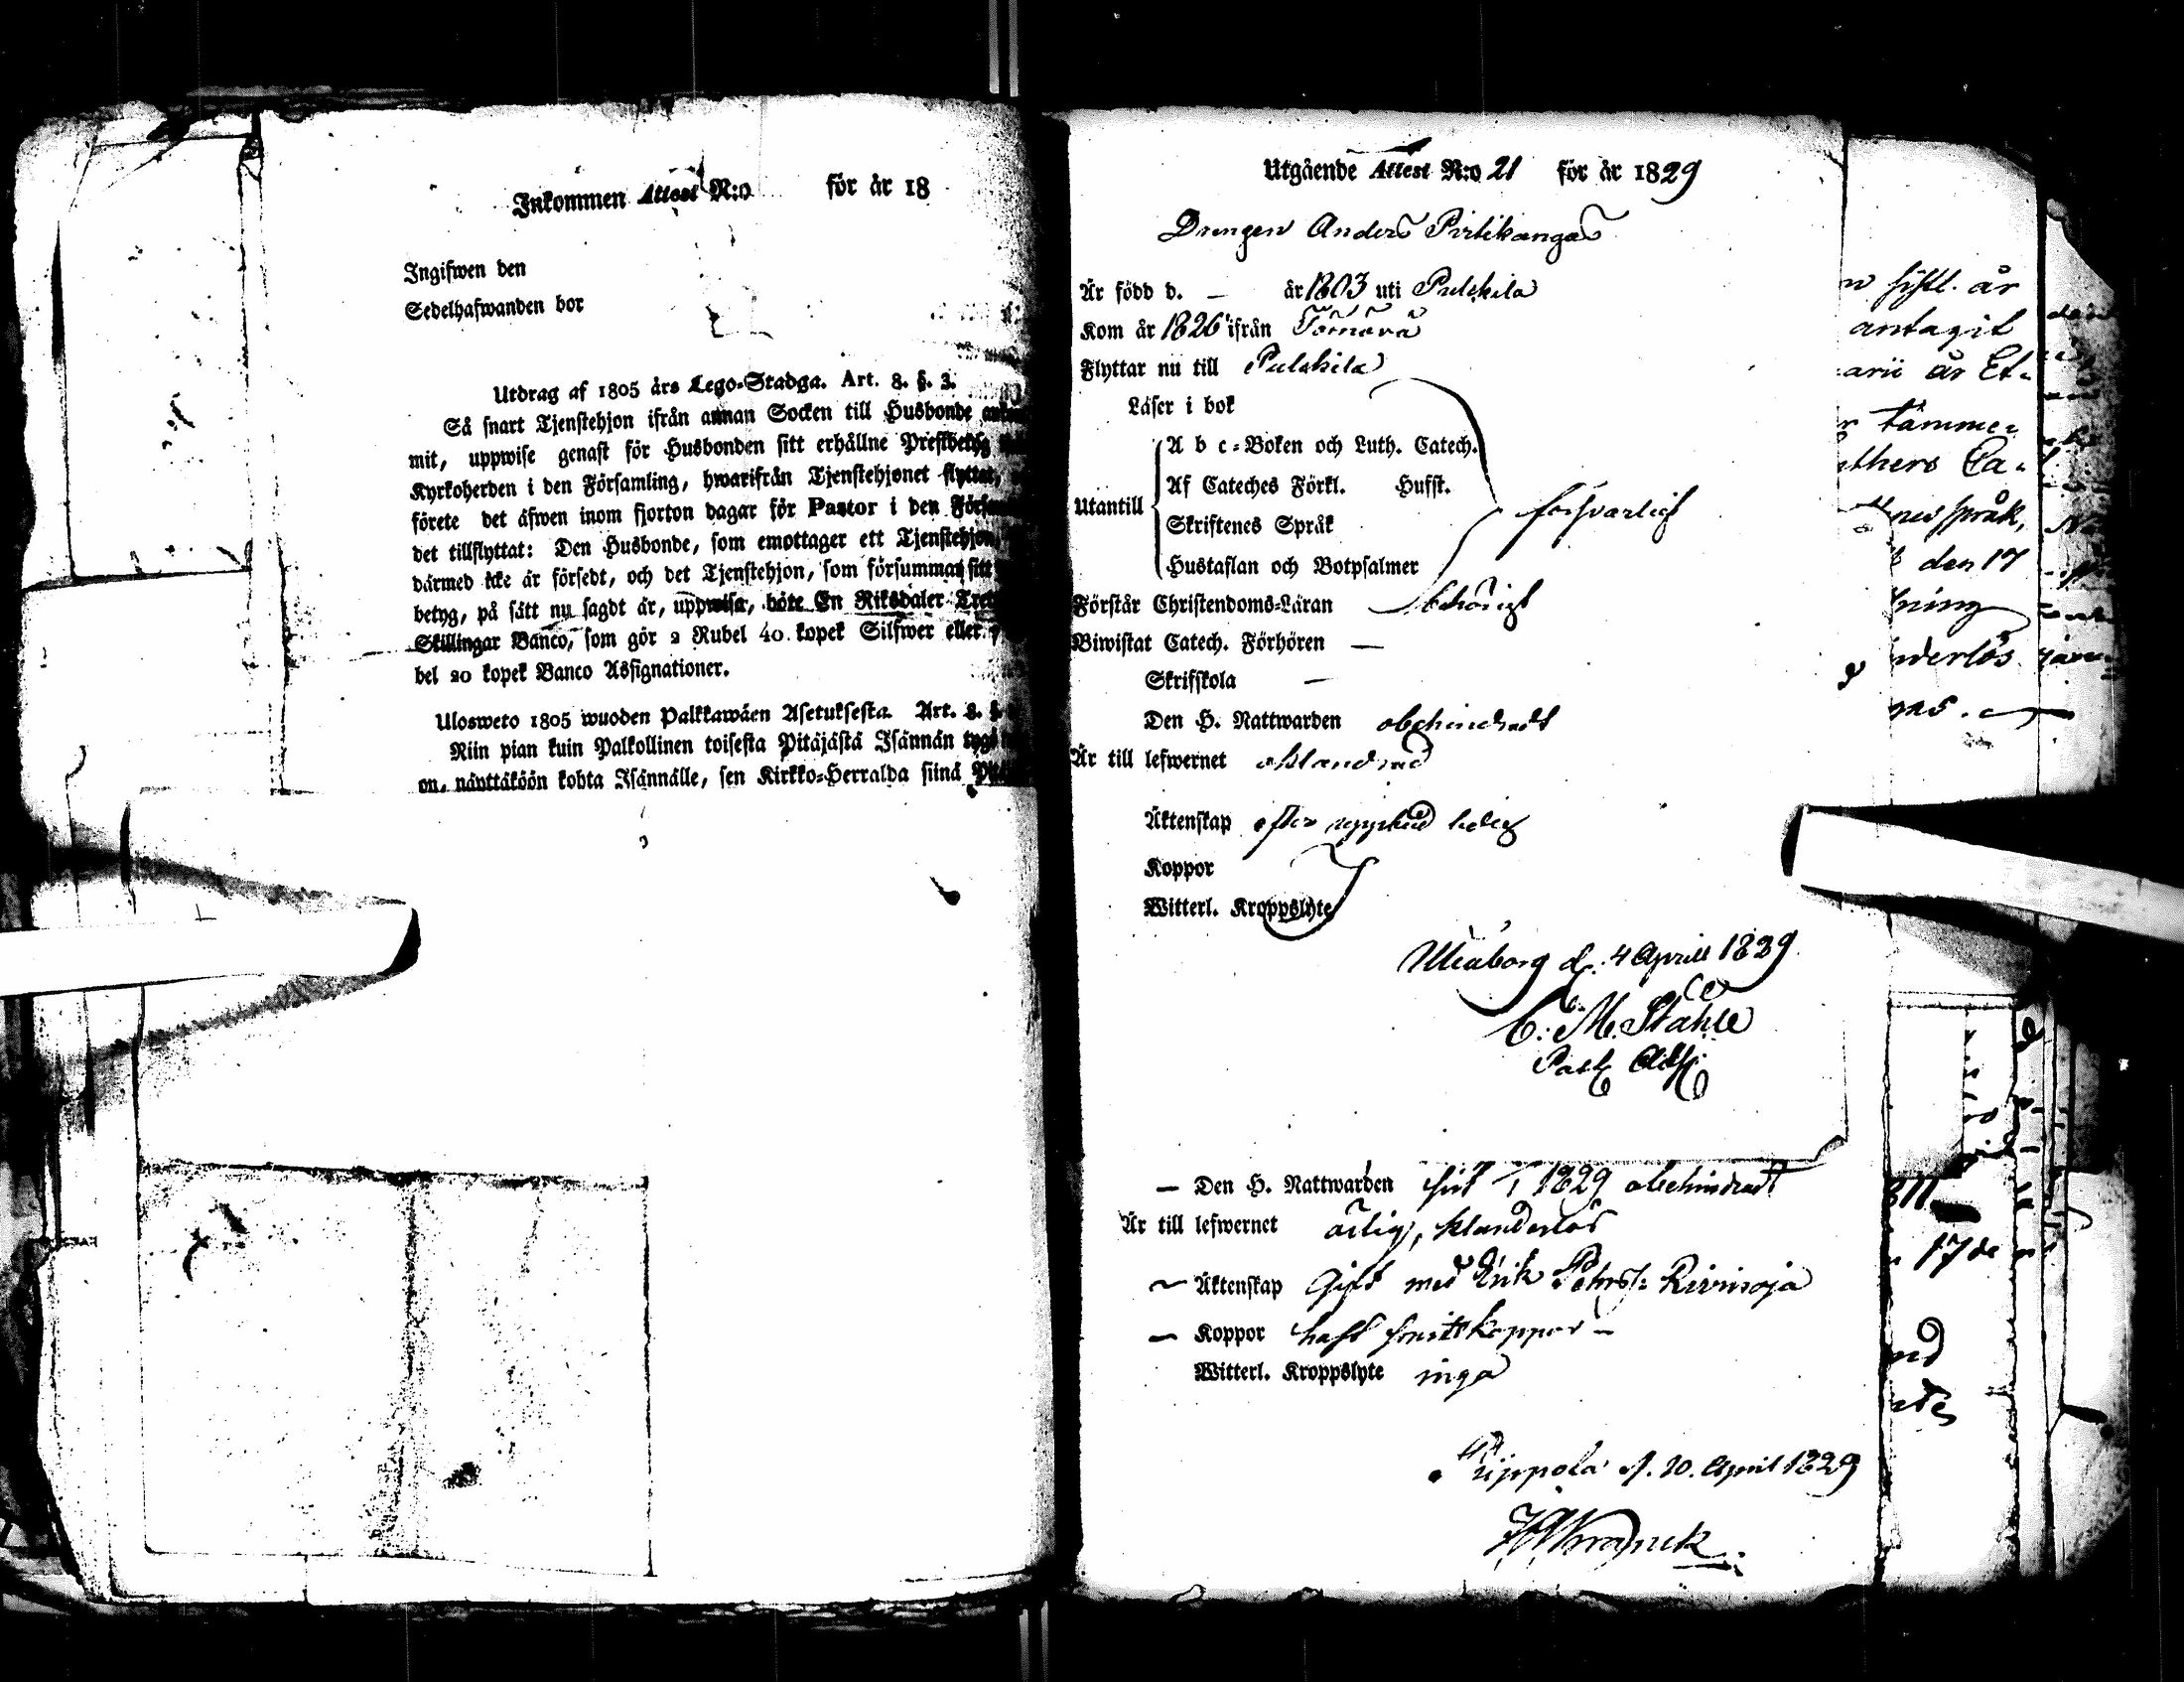 Inkommen Attest N:o för år 18
Ingifwen den
Sedelhafwanden bor
Utdrag af 1805 års Lego-Stadga. Art. 8. §. 3.
Så snart Tjenstehjon ifrån annan Socken till Husbonde
mit, uppwise genast för Husbonden sitt erhållne Prestbetyg
Kyrkoherden i den Församling, hwarifrån Tjenstehjonet flyttat,
förete det äfwen inom fjorton dagar för Pastor i den
det tillflyttat: Den Husbonde, som emottager ett Tjenstehjon,
därmed icke är försedt, och det Tjenstehjon, som försummar sitt
betyg, på sätt nu sagdt är, uppwisa, böte En Riksdaler
Skillingar Banco, som gör 2 Rubel 40 kopek Silfwer eller
bel 20 kopek Banco Assignationer.
Ulosweto 1805 wuoden Palkkawäen Asetuksesta. Art. 8. §.
Niin pian kuin Palkollinen toisesta Pitäjästä Isännän tygö
on, näyttäköön kohta Isännälle, sen Kirkko-Herralda siinä
Utgående Attest N:o 21 för år 1829
Drengen Anders Pirtikangas
Är född d. — år 1803 uti Pulckila
Kom år 1826 ifrån Törnävä
Flyttar nu till Pulckila
Läser i bok
A b c-Boken och Luth. Catech.
Af Cateches Förkl. Husst.
Utantill
försvarligt
Skriftenes Språk
Hustaflan och Botpsalmer
Förstår Christendoms-Läran behörigt
Biwistat Catech. Förhören —
Skrifskola —
Den H. Nattwarden obehindradt
Är till lefwernet oklandrad
Äktenskap efter uppbud ledig
Koppor
Witterl. Kroppslyte
Uleåborg d. 4 Aprill 1829.
C. M. Ståhle
Past. Adj.
— Den H. Nattwarden sist 1829 obehindradt
Är till lefwernet ärlig, klanderlös
— Äktenskap Gift med Erik Petterss. Rivinoja
— Koppor haft smittkoppor —
Witterl. Kroppslyte inga
Pippola d. 10. April 1829
n sistl. år
antagit
arii år Et-
Tamme-
thers Ca-
nes språk,
den 17
ning
nderlös
17 de